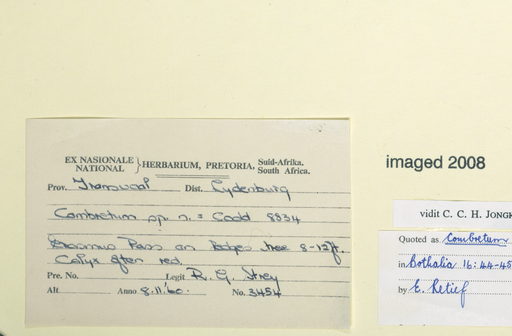 EX NASIONALE
NATIONAL } HERBARIUM, PRETORIA, Suid-Afrika.
South Africa.
Prov. Transvaal Dist. Lydenburg
Combretum sp. n. = Codd 8834
Erasmus Pass on ledges tree 8-12ft.
Calyx often red.
Pre. No. Legit R. G. Strey
Alt Anno 8.11.60. No. 3454
imaged 2008
vidit C. C. H. JONGK
Quoted as Combretum
in Bothalia 16:44-45
by E. Retief